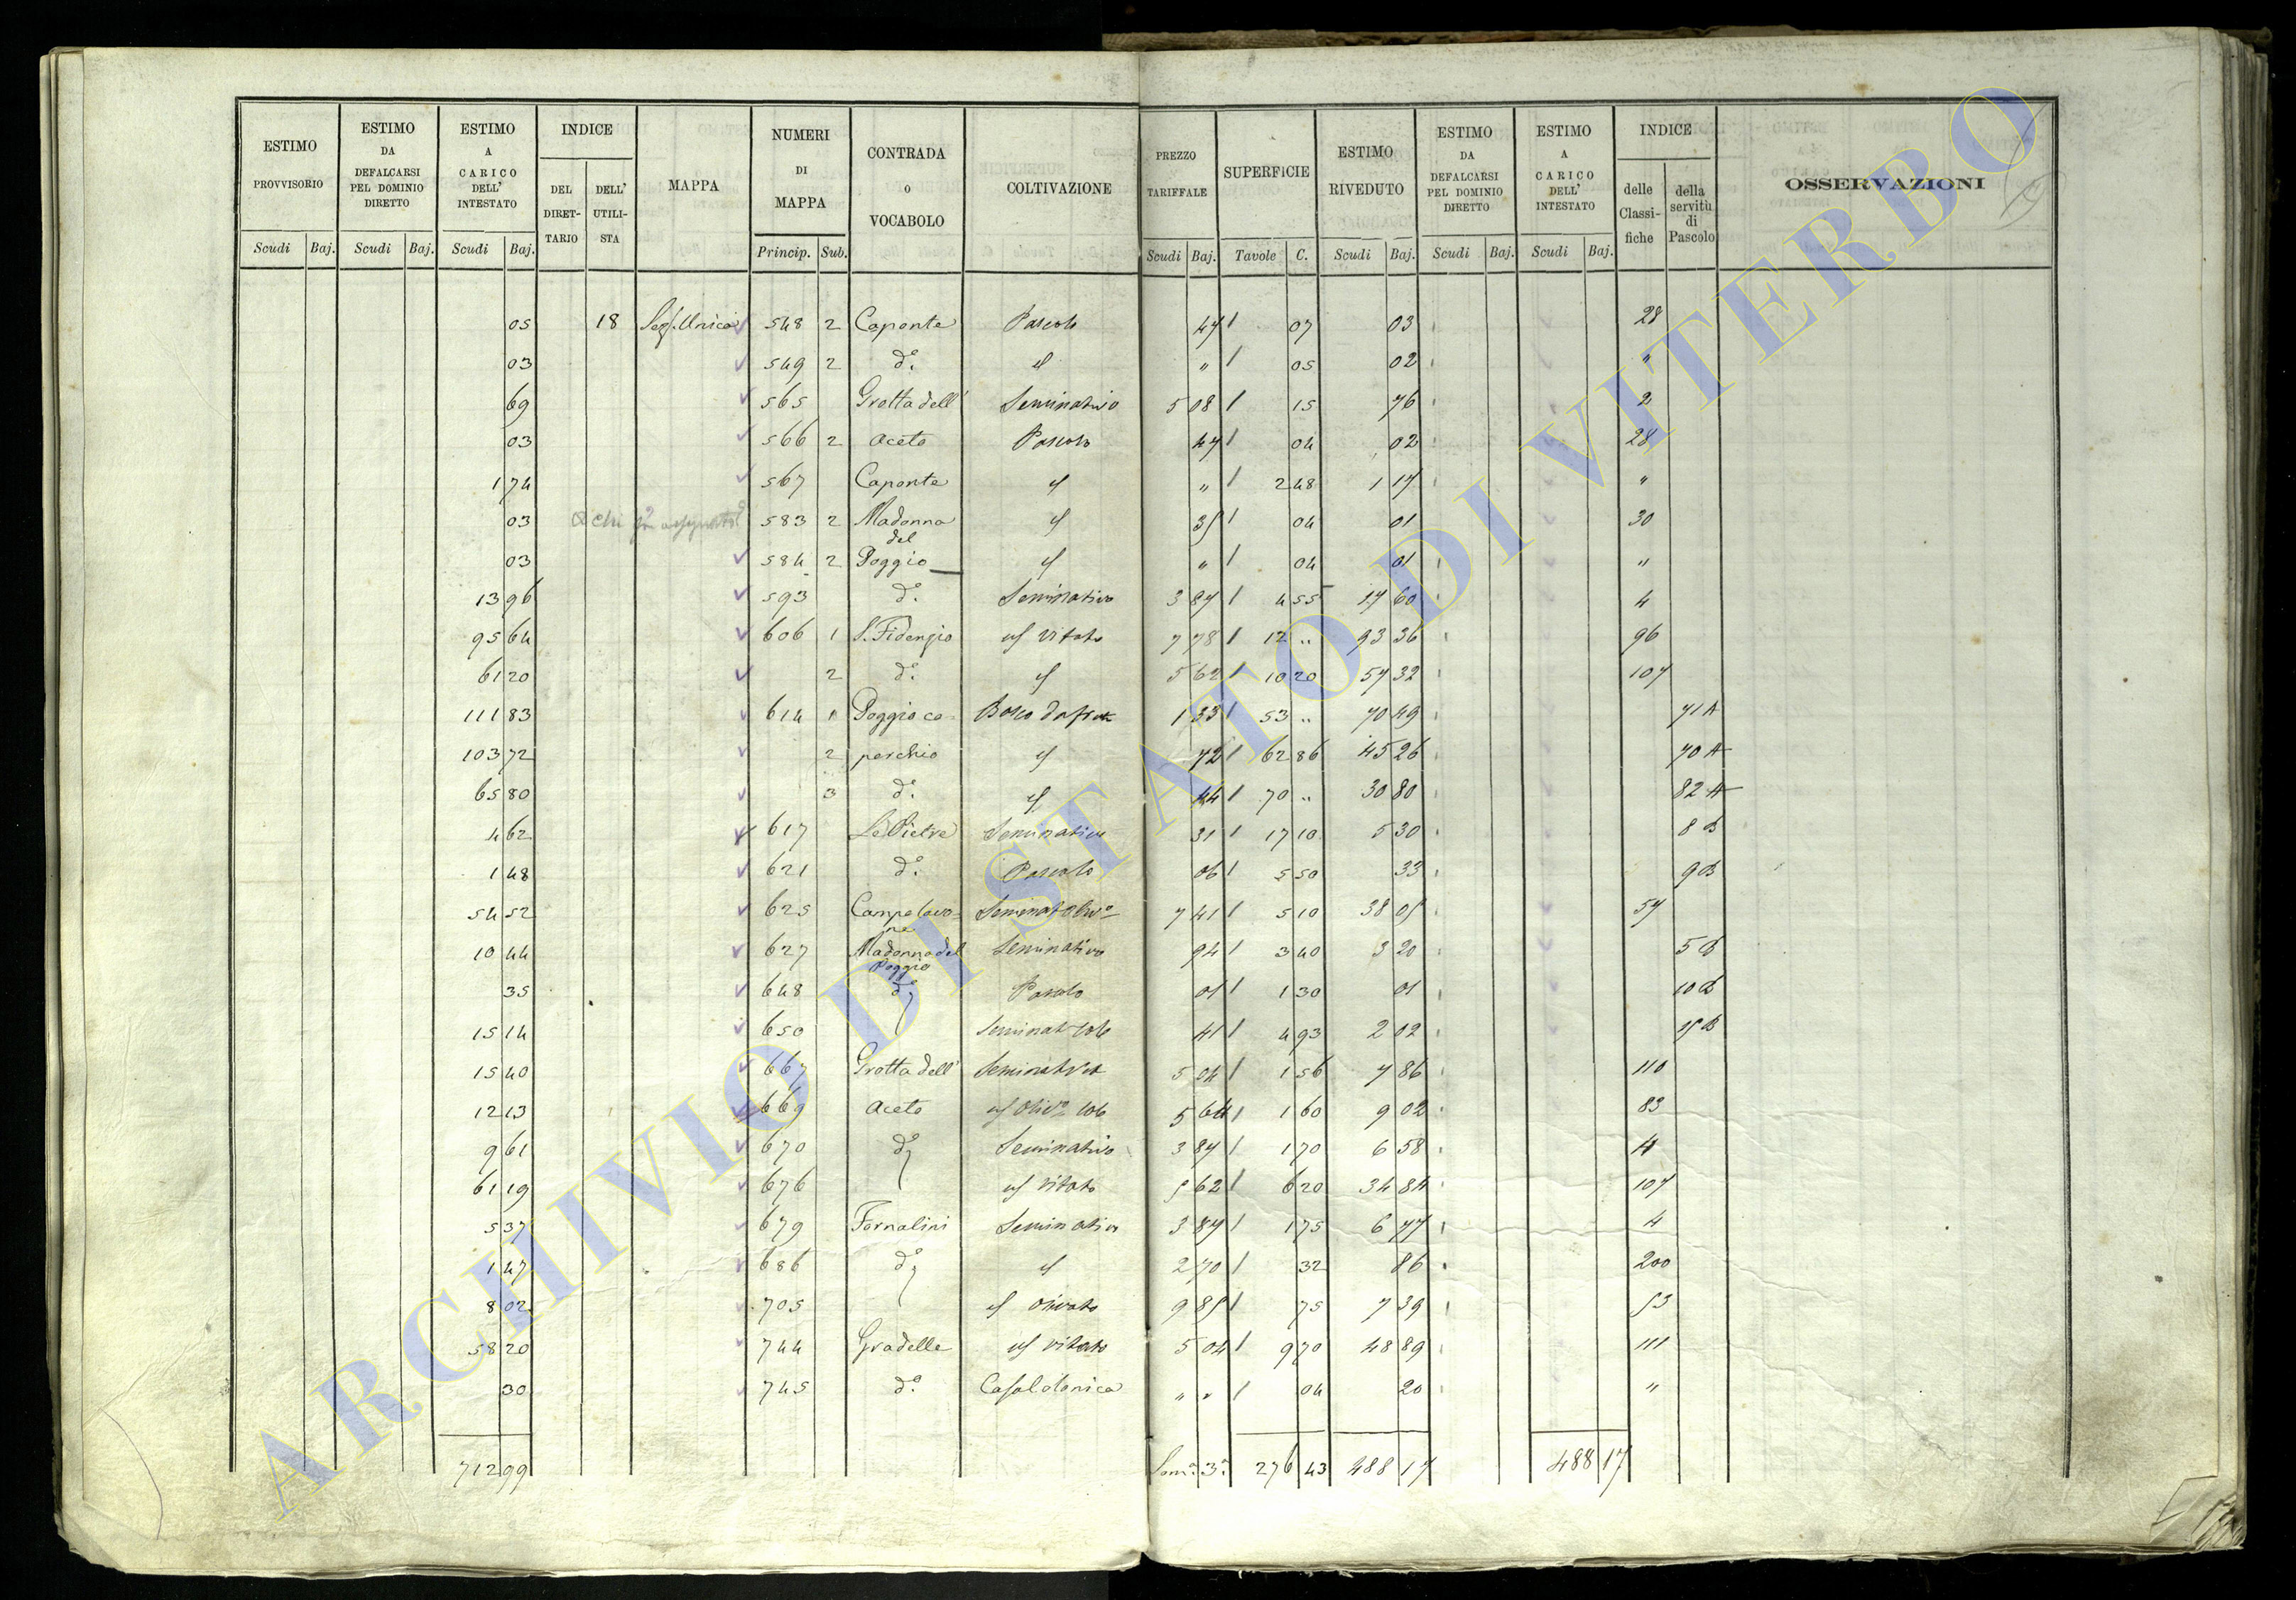 ESTIMO PROVVISORIO | ESTIMO DA DEFALCARSI PEL DOMINIO DIRETTO | ESTIMO A CARICO DELL' INTESTATO | INDICE | MAPPA | NUMERI DI MAPPA | CONTRADA O VOCABOLO | COLTIVAZIONE | PREZZO TARIFFALE | SUPERFICIE | ESTIMO RIVEDUTO | ESTIMO DA DEFALCARSI PEL DOMINIO DIRETTO | ESTIMO A CARICO DELL' INTESTATO | INDICE | OSSERVAZIONI
DEL DIRETTARIO | DELL' UTILISTA | delle Classifiche | della servitù di Pascolo
Scudi | Baj. | Scudi | Baj. | Scudi | Baj. | Princip. | Sub. | Scudi | Baj. | Tavole | C. | Scudi | Baj. | Scudi | Baj. | Scudi | Baj.
05 | 18 | Sez. Unica | 548 | 2 | Caponte | Pascolo | 47 | 07 | 03 | 28
03 | 549 | 2 | d.º | id | " | 05 | 02 | "
69 | 565 | Grotta dell' | Seminativo | 5 08 | 15 | 76 | 2
03 | 566 | 2 | Aceto | Pascolo | 47 | 04 | 02 | 28
1 74 | 567 | Caponte | id | " | 2 48 | 1 17 | "
03 | 583 | 2 | Madonna del | id | 35 | 04 | 01 | 30
03 | 584 | 2 | Poggio | id | " | 04 | 01 | "
13 96 | 593 | d.º | Seminativo | 3 87 | 4 55 | 17 60 | 4
95 64 | 606 | 1 | S. Fidenzio | id vitato | 7 78 | 12 " | 93 36 | 96
61 20 | 2 | d.º | id | 5 62 | 10 20 | 57 32 | 107
111 83 | 614 | 1 | Poggio co- | Bosco da frutto | 1 33 | 53 " | 70 49 | 71 A
103 72 | 2 | perchio | id | 72 | 62 86 | 45 26 | 70 A
65 80 | 3 | d.º | id | 44 | 70 " | 30 80 | 82 A
4 62 | 617 | Le Pietre | Seminativo | 31 | 17 10 | 5 30 | 8 B
1 48 | 621 | d.º | Pascolo | 06 | 5 50 | 33 | 9 B
54 52 | 625 | Seminat Oliv.º | 7 41 | 5 10 | 38 05 | 57
10 44 | 627 | Madonna del Poggio | Seminativo | 94 | 3 40 | 3 20 | 5 B
35 | 648 | d.º | Pascolo | 01 | 1 30 | 01 | 10 B
15 14 | 650 | Seminat | 41 | 4 93 | 2 02 | B
15 40 | 667 | Grotta dell' | Seminat Vit | 5 04 | 1 56 | 7 86 | 110
12 13 | 669 | Aceto | id Oliv.º | 5 64 | 1 60 | 9 02 | 83
9 61 | 670 | d.º | Seminativo | 3 87 | 1 70 | 6 58 | 4
61 19 | 676 | id vitato | 5 62 | 6 20 | 34 84 | 107
5 37 | 679 | Fornalini | Seminativo | 3 87 | 1 75 | 6 77 | 4
1 47 | 686 | d.º | id | 2 70 | 32 | 86 | 200
8 02 | 705 | id olivato | 9 85 | 75 | 7 39 | 53
58 20 | 744 | Gradelle | id vitato | 5 04 | 9 70 | 48 89 | 111
30 | 745 | d.º | Casa Colonica | " " | 04 | 20 | "
712 99 | Som.ª 3.ª | 276 43 | 488 17 | 488 17
ARCHIVIO DI STATO DI VITERBO